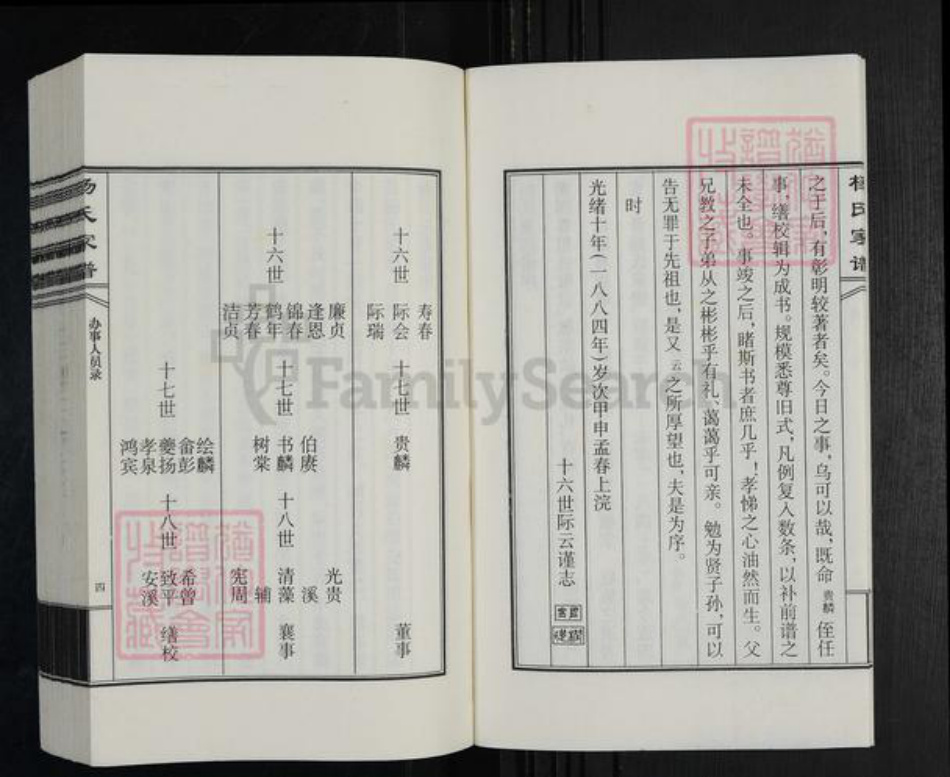 杨氏家谱
之于后，有彰明较著者矣。今日之事，乌可以哉，既命 贵麟 侄任
事，缮校辑为成书。规模悉尊旧式，凡例复入数条，以补前谱之
未全也。事竣之后，睹斯书者庶几乎！孝悌之心油然而生。父
兄教之子弟从之彬彬乎有礼、蔼蔼乎可亲。勉为贤子孙，可以
告无罪于先祖也，是又 云 之所厚望也，夫是为序。
时
光绪十年（一八八四年）岁次甲申孟春上浣
十六世际云谨志
寿春
十六世 际会 十七世 贵麟 董事
际瑞
廉贞 光贵
逢恩 伯赓 溪
锦春 十七世 书麟 十八世 清藻 襄事
十六世 鹤年 树棠 辅
芳春 宪周
洁贞
绘麟
畲彭 希曾
十七世 夔扬 十八世 致平 缮校
孝泉 安溪
鸿宾
杨氏家谱
办事人员录
四
FamilySearch